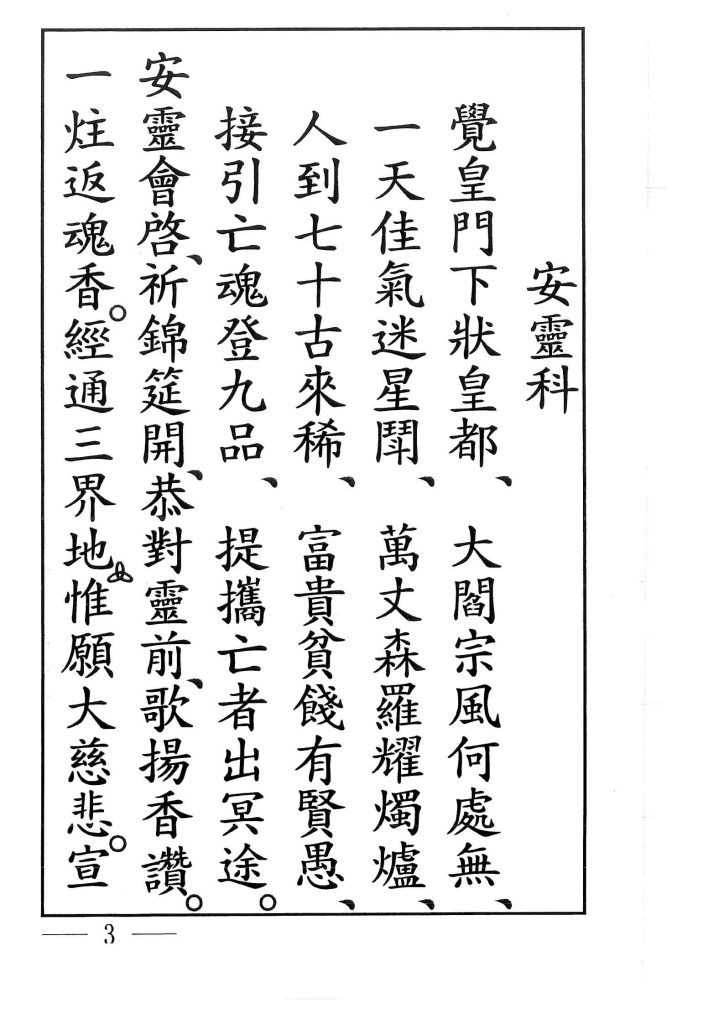 安靈科
覺皇門下狀皇都、 大閻宗風何處無、
一天佳氣迷星鬪、 萬丈森羅耀燭爐、
人到七十古來稀、 富貴貧餞有賢愚、
接引亡魂登九品、 提攜亡者出冥途。
安靈會啓、祈錦筵開、恭對靈前、歌揚香讚。
一炷返魂香。經通三界地惟願大慈悲。宣
3